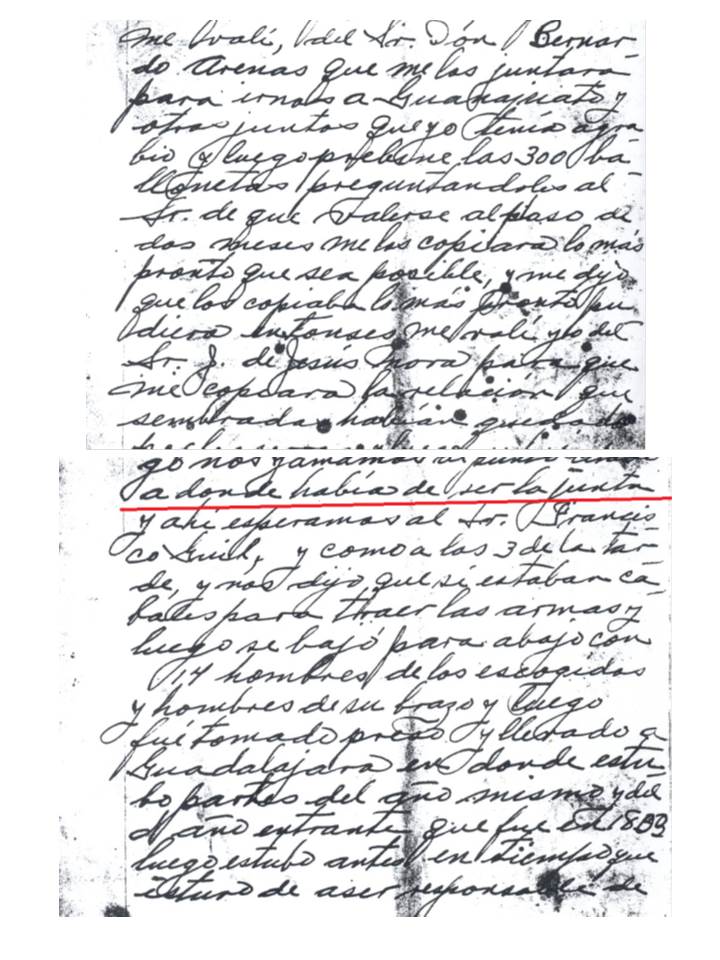 me valí, del Sr. Dón Bernar
do Arenas que me las juntara
para irnos a Guanajuato y
otras juntas que yo tenía agra
bio y luego prebine las 300 ba
llonetas preguntandoles al
Sr. de que valerse al paso de
dos meses me las copiara lo más
pronto que sea posible, y me dijo
que los copiaba lo más pronto pu
diera entonses me valí yo del
Sr. J. de Jesús Mora para que
me copiara la relación que
sembrada habían quedado
go nos
a donde había de ser la junta
y ahí esperamos al Sr. Francis
co Guil, y como a las 3 de la tar
de, y nos dijo que si estaban ca
bales para traer las armas y
luego se bajó para abajo con
14 hombres de los escogidos
y hombres de su brazo y luego
fué tomado preso y llevado a
Guadalajara en donde estu
bo partes del año mismo y del
año entrante que fue en 1893
luego estubo antes en tiempo que
estuvo de aser responsable de